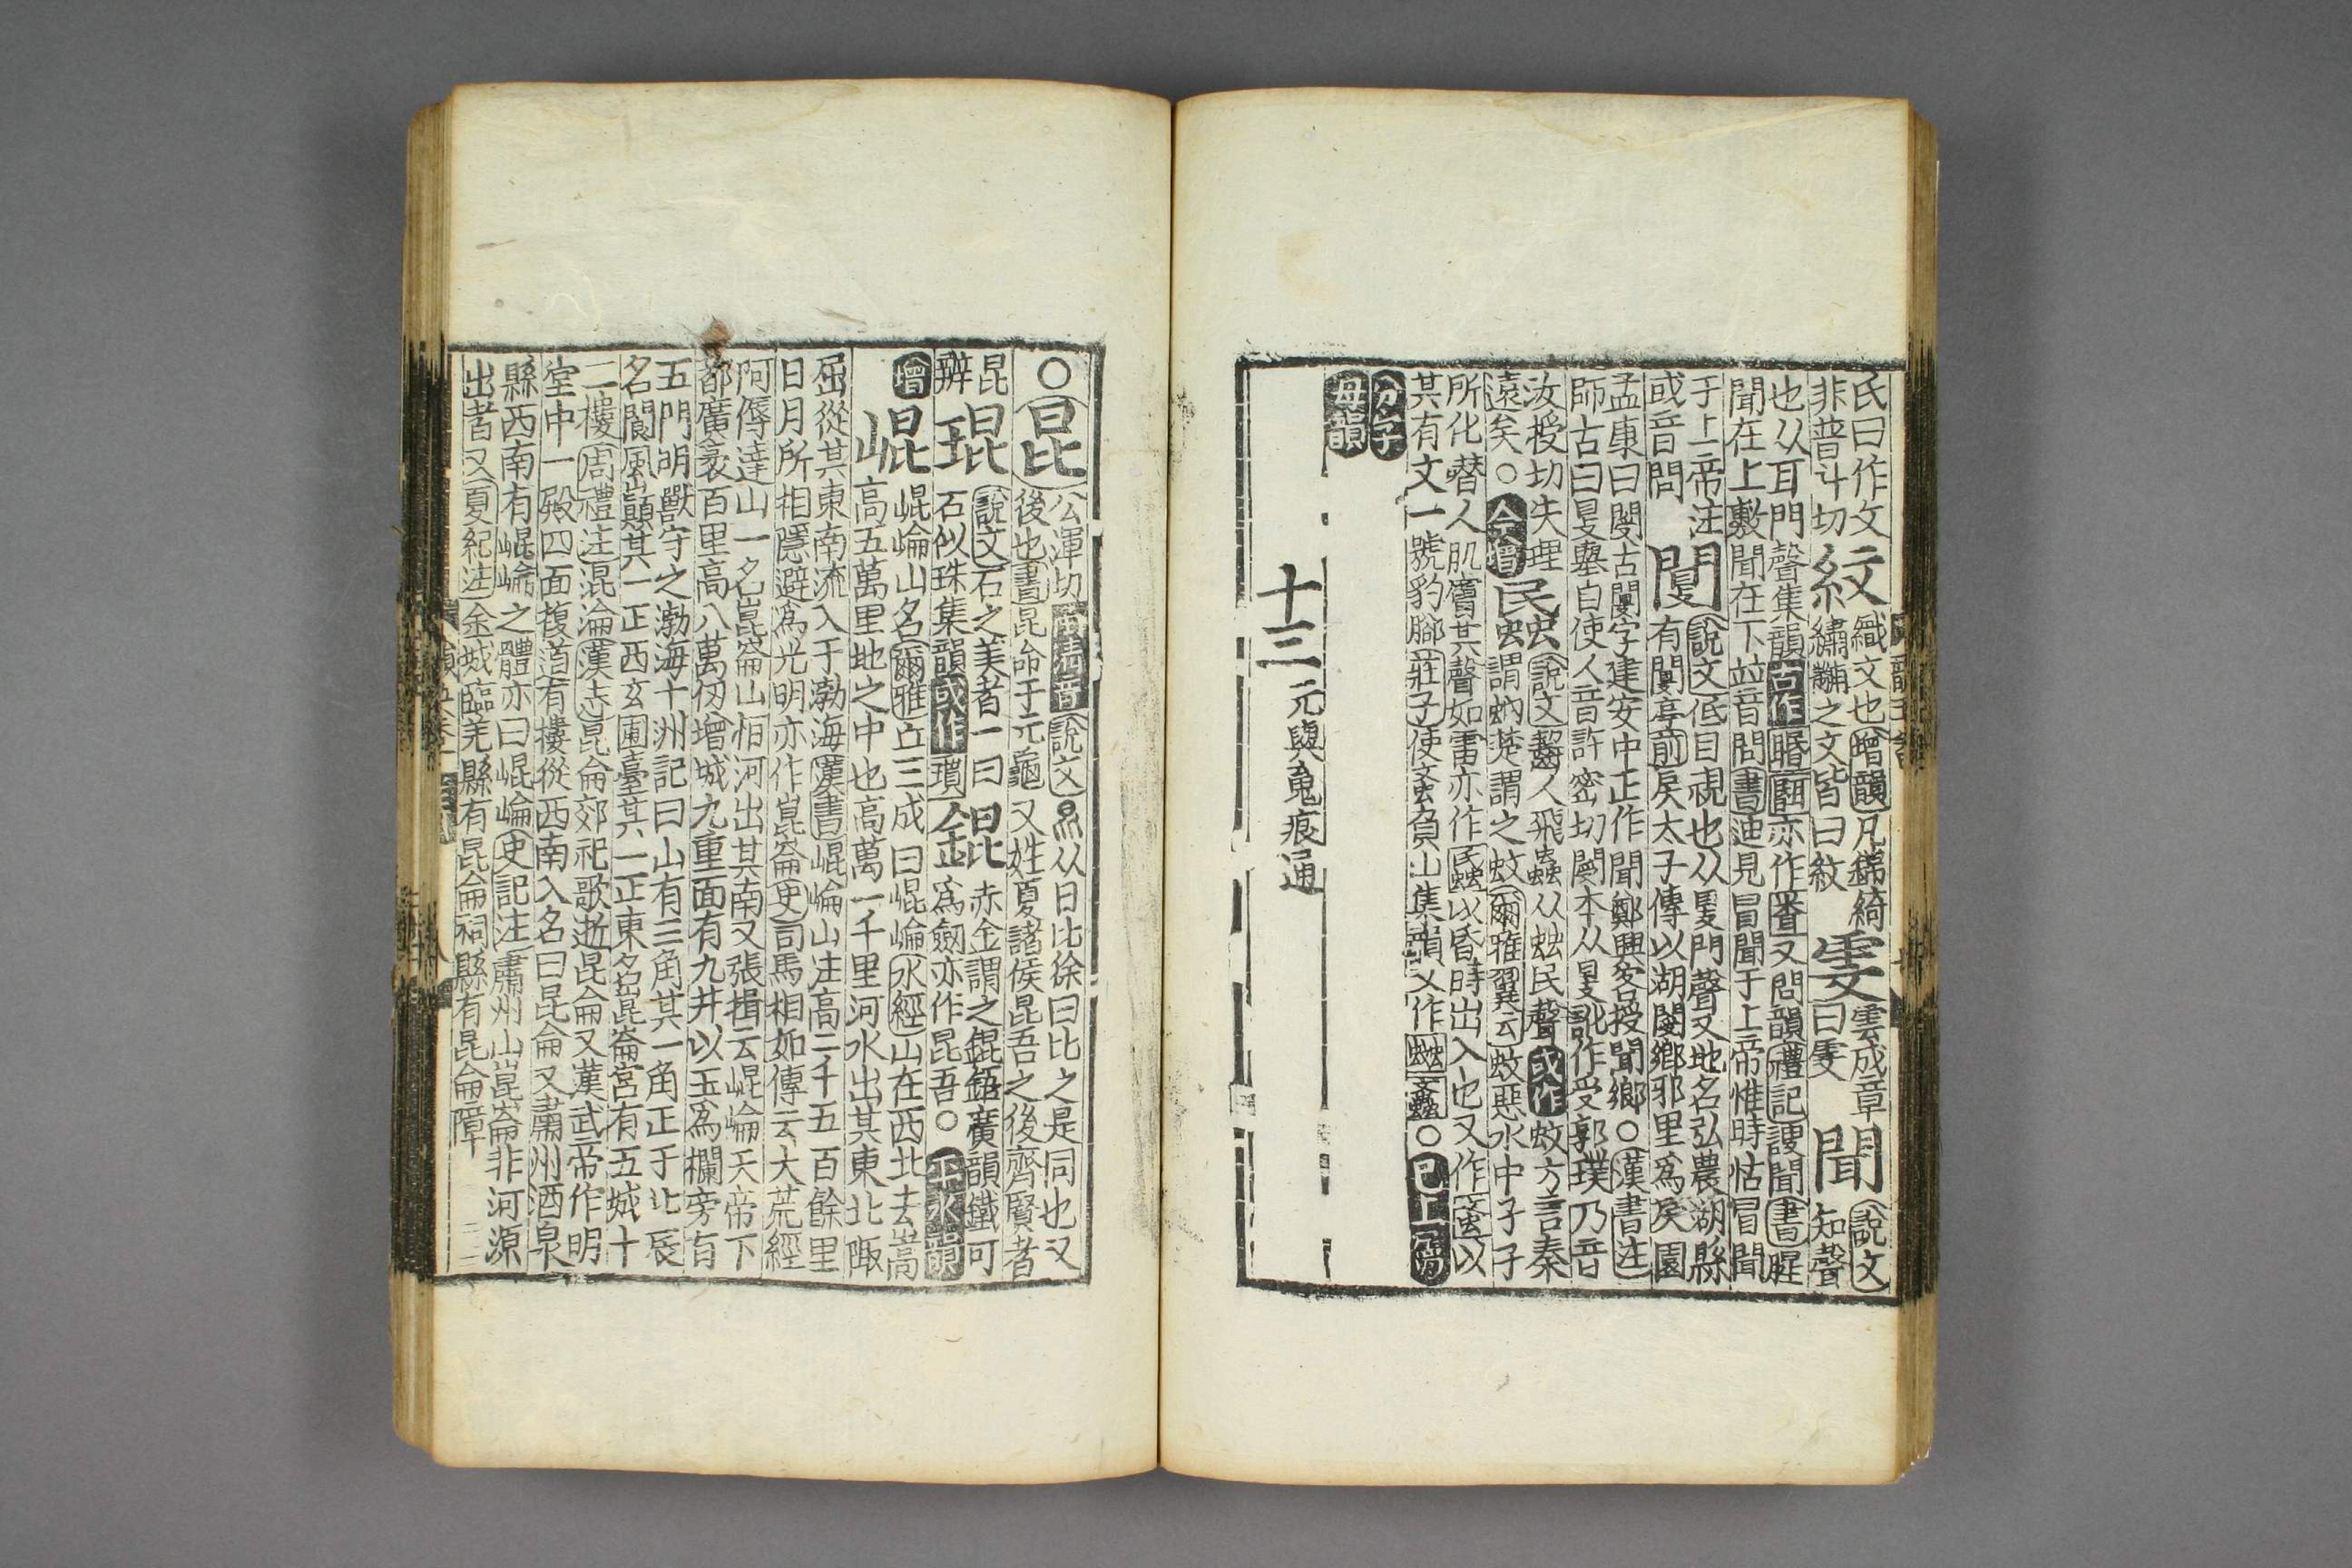 氏曰作文
非普斗切
紋
織文也增韻凡錦綺
繡黼之文皆曰紋
雯
雲成章
曰雯
聞
說文
知聲
也从耳門聲集韻古作䎽䎹亦作㖧又問韻禮記謏聞書腥
聞在上敷聞在下並音問書迪見冒聞于上帝惟時怙冒聞
于上帝注
或音問
閿
說文低目視也从門聲又地名弘農湖縣
有閿亭前戾太子傳以湖閿鄉邪里爲戾園
孟東曰閿古閿字建安中正作聞鄭興客授聞鄉○漢書注
師古曰舉目使人音許密切閿本从訛作受郭璞乃音
汝授切失理
遠矣○今增
說文齧人飛蟲从䖵民聲或作蚊方言秦
謂蚋楚謂之蚊爾雅翼云蚊惡水中孑孓
所化噆人肌膚其聲如雷亦作䘇以昏時出入也又作蟁以
其有文一號豹腳莊子使蚉負山集韻又作○已上
分字
母韻
十三 元與䰟痕通
○昆
公渾切音說文从日比徐曰比之是同也又
後也書昆命于元龜又姓夏諸侯昆吾之後齊賢者
昆
辨
琨
說文石之美者一曰
石似珠集韻或作瑻
錕
赤金謂之錕鋙廣韻鐵可
爲劒亦作昆吾○平水韻
增
崐
崐崘山名爾雅丘三成曰崐崘水經山在西北去嵩
高五萬里地之中也高萬一千里河水出其東北陬
屈從其東南流入于渤海漢書崐崘山注高二千五百餘里
日月所相隱避爲光明亦作崑崙史司馬相如傳云大荒經
阿傉達山一名崑崙山恒河出其南又張揖云崐崘天帝下
都廣袤百里高八萬仞增城九重面有九井以玉爲欄旁有
五門明獸守之渤海十洲記曰山有三角其一角正于北辰
名閬風巔其一正西玄圃臺其一正東名崑崙宮有五城十
二樓周禮注混淪漢志昆侖郊祀歌逝昆侖又漢武帝作明
堂中一殿四面複道有樓從西南入名曰昆侖又肅州酒泉
縣西南有崐崘之體亦曰崐崘史記注肅州山崑崙非河源
出者又夏紀注金城臨羌縣有昆侖祠縣有昆侖障